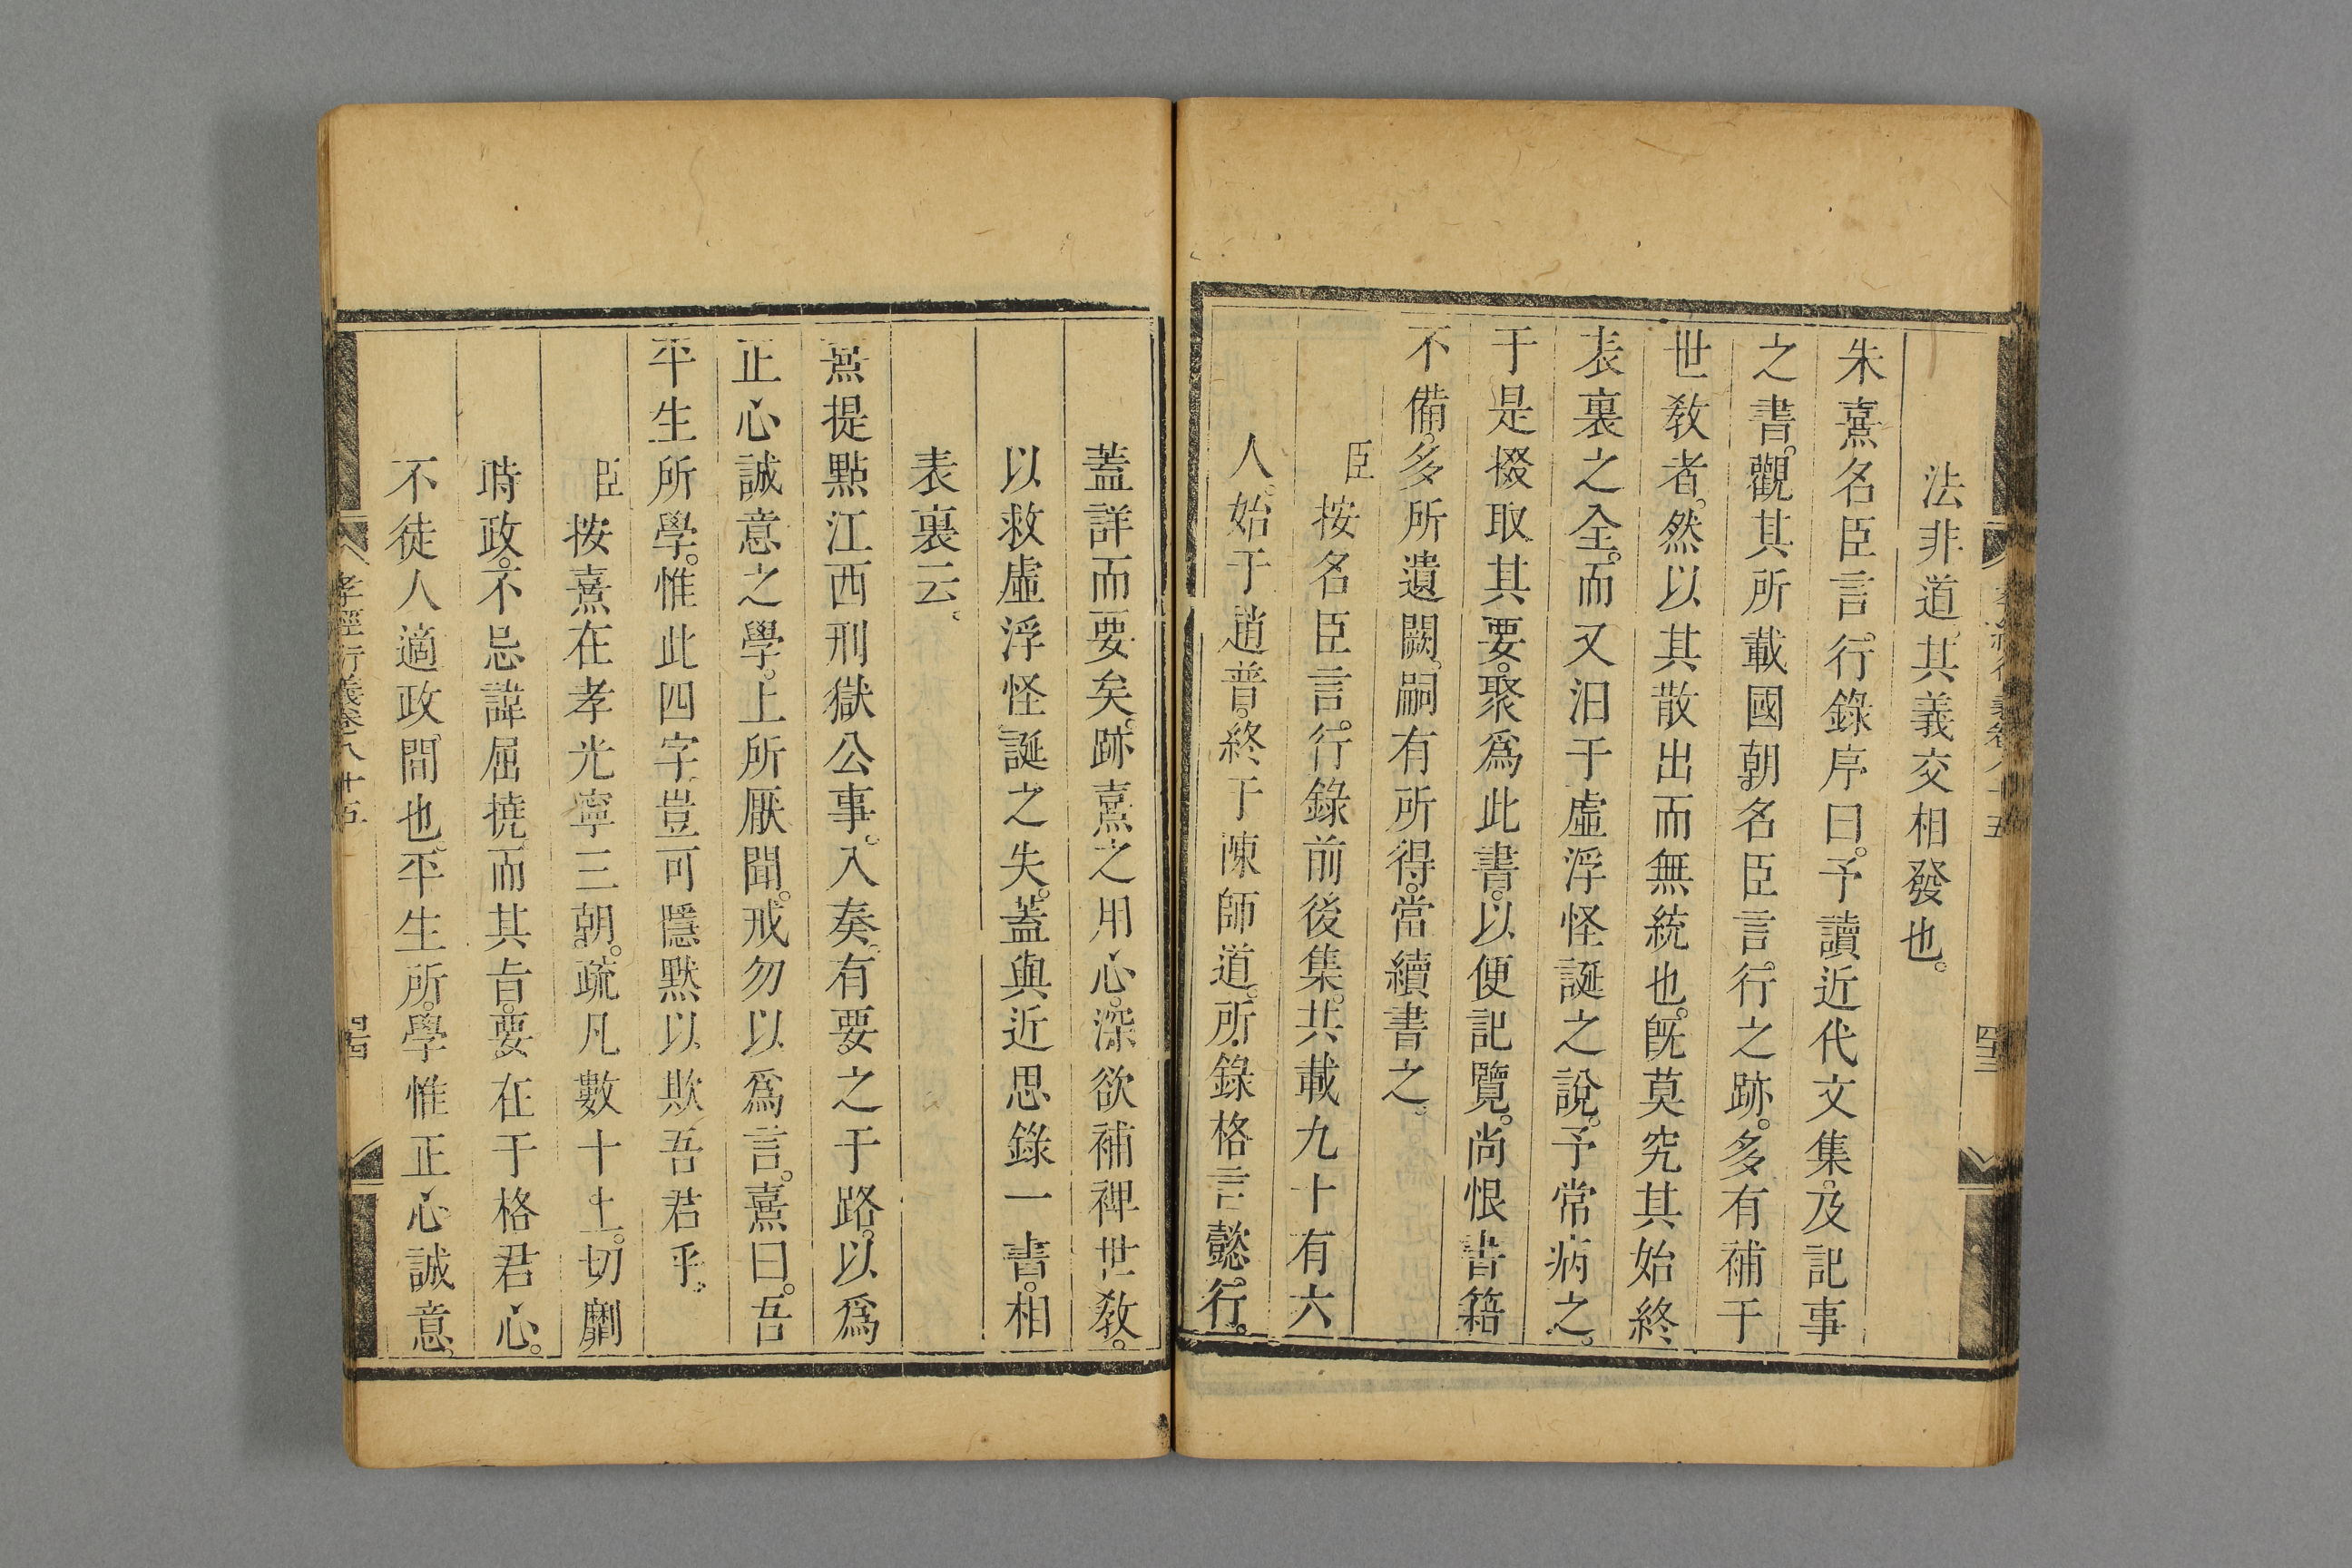 法非道其義交相發也。
朱熹名臣言。行錄序曰。予讀近代文集。及記事
之書。觀其所載國朝。名臣言。行之跡。多有補于
世教者。然以其散出而無統也。旣莫究其始終
表裏之全。而又汨于虛浮怪誕之說。予常病之。
于是掇取其要。聚爲此書。以便記覽。尚恨書籍
不備。多所遺闕。嗣有所得。當續書之。
臣按名臣言。行錄前後集。共載九十有六
人。始于趙普。終于陳師道。所錄格言懿。行。
蓋詳而要矣。跡熹之用心。深欲補裨世教。
以救虛浮怪誕之失。蓋與近思錄一書。相
表裏云。
熹提點江西刑獄公事。入奏。有要之于路。以爲
正心誠意之學。上所厭聞。戒勿以爲言。熹曰。吾
平生所學。惟此四字豈可隱默以欺吾君乎。
臣按熹在孝光寧三朝。疏凡數十上。切劘
時政。不忌諱屈撓。而其旨。要在于格君心。
不徒人適政間也。平生所。學惟正心誠意。
孝經衍義卷八十五
四十四